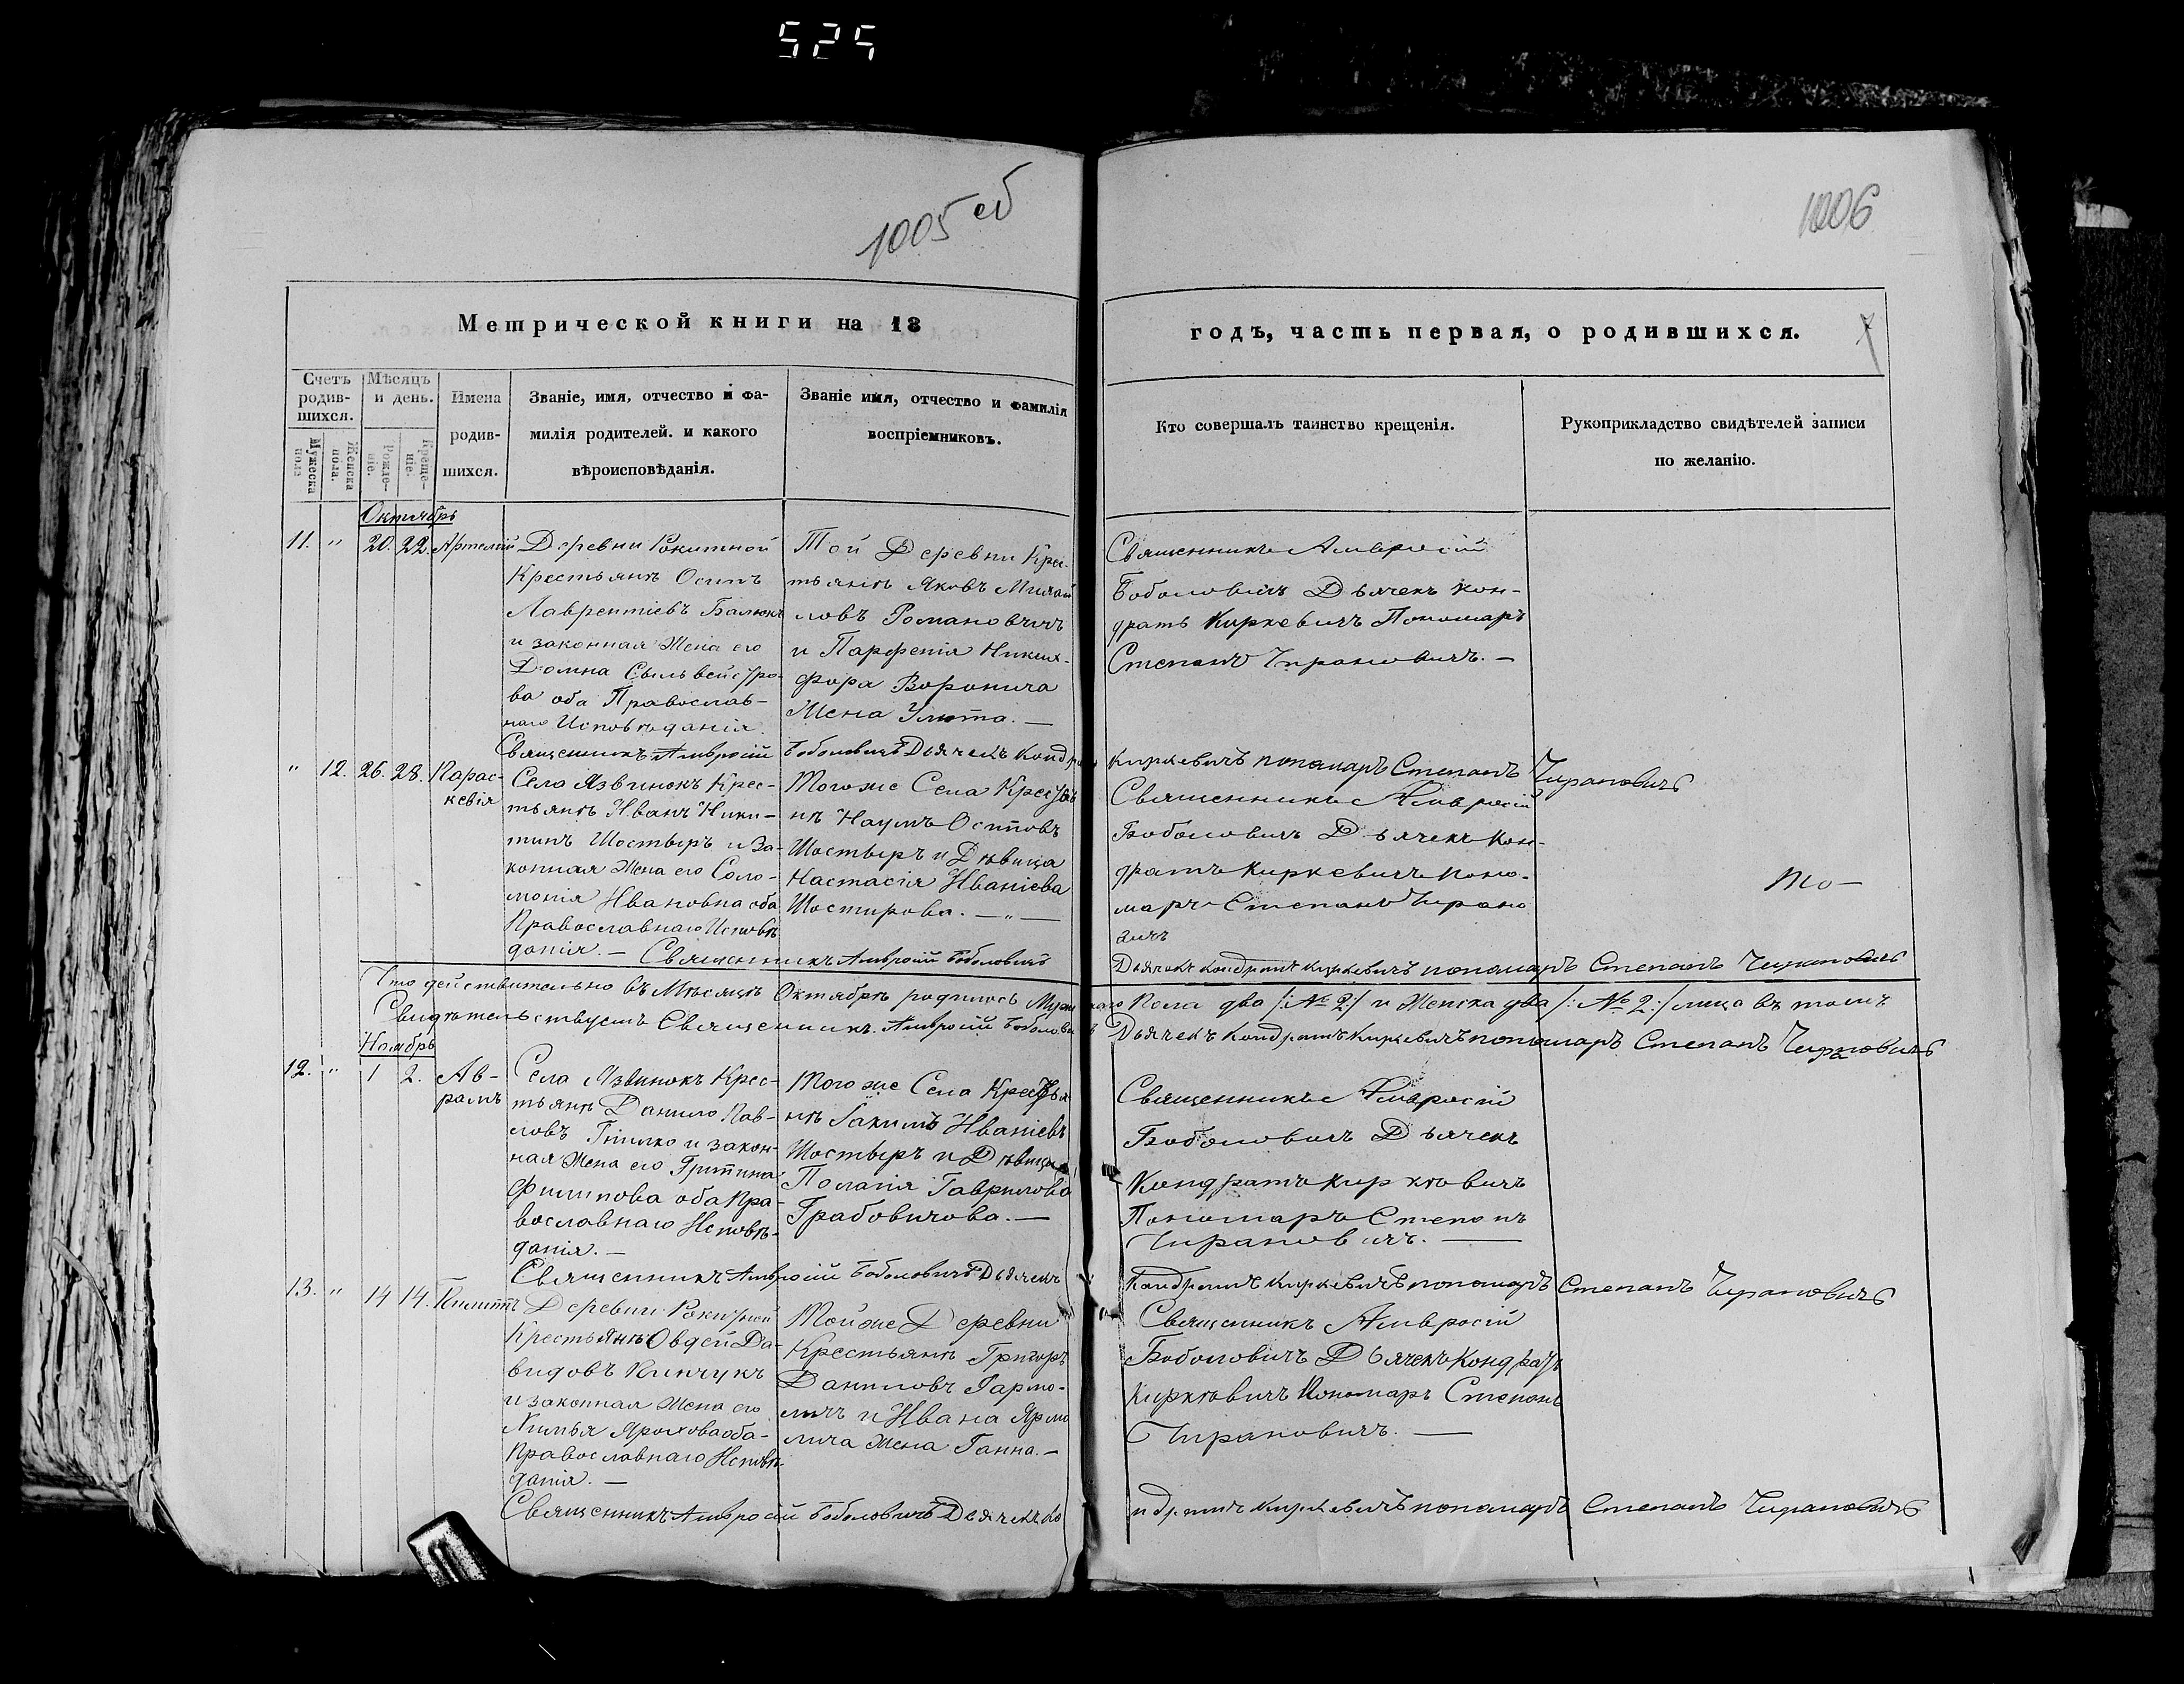 525
1005 об
1006
Метрической книги на 18
годъ, часть первая, о родившихся.
7
Счетъ родив-шихся.
Мѣсяцъ и день.
Имена родив-шихся.
Званіе, имя, отчество и фа-
милія родителей. и какого
вѣроисповѣданія.
Званіе имя, отчество и фамилія
воспріемниковъ.
Кто совершалъ таинство крещенія.
Рукоприкладство свидѣтелей записи
по желанію.
Мужеска пола
Женска пола.
Рожде-ніе.
Креще-ніе.
Октябрь
11. " 20. 22. Артемій
Деревни Рокитной
Крестьянъ Осипъ
Лаврентіевъ Балюкъ
и законная Жена его
Домна Сыльвестро-
ва оба Православ-
наго Исповѣданія.
Той Деревни Крес-
тьянъ Яковъ Михай
ловъ Романовичъ
и Парфенія Никих-
фора Воронича
Жена Улита. —
Священникъ Амвросій
Боболовичъ Дьячекъ Кон-
дратъ Киркевичъ Пономарь
Степанъ Чирановичъ. —
Священникъ Амвросій Боболовичъ Дьячекъ Кондратъ Киркевичъ пономарь Степанъ Чирановичъ
" 12. 26. 28. Парас-
кевія
Села Язвинокъ Крес-
тьянъ Иванъ Ники-
тинъ Шостыръ и За-
конная Жена его Соло-
монія Ивановна оба
Православнаго Исповѣ
данія. —
Тогоже Села Крестья
нъ Наумъ Осиповъ
Шостыръ и Дѣвица
Настасія Иваніева
Шостирова. — " —
Священникъ Амвросій
Боболовичъ Дьячекъ Кон-
дратъ Киркевичъ Поно-
марь Степанъ Чирано
вичъ
то —
Священникъ Амвросій Боболовичъ
Дьячекъ Кондратъ Киркевичъ пономарь Степанъ Чирановичъ
Что действительно въ Мѣсяцѣ Октябрѣ родилось Мужескаго Пола два /: № 2:/ и Женска два /: № 2:/ лица въ томъ
Свидѣтельствуетъ Священникъ Амвросій Боболовичъ Дьячекъ Кондратъ Киркевичъ пономарь Степанъ Чирановичъ
Ноябрь
12. " 1 2. Ав-
рамъ
Села Язвинокъ Крес-
тьянъ Данило Пав-
ловъ и закон-
ная Жена его
Филипова оба Пра-
вославнаго Исповѣ-
данія. —
Тогоже Села Крестья
нъ Іакимъ Иваніевъ
Шостыръ и Дѣвица
Полагія Гаврилова
Грабовичова. —
Священникъ Амвросій
Боболовичъ Дьячекъ
Кондратъ Киркѣвичъ
Пономарь Степанъ
Чирановичъ. —
Священникъ Амвросій Боболовичъ Дьячекъ Кондратъ Киркевичъ пономарь Степанъ Чирановичъ
13. " 14 14. Филиппъ
Деревни Рокитной
Крестьянъ Овдей Да-
видовъ Кинчукъ
и законная Жена его
Химья оба-
Православнаго Исповѣ-
данія. —
Тойже Деревни
Крестьянъ Григорь
Даниловъ Ярмо-
личъ и Ивана Ярмо
лича Жена Ганна. —
Священникъ Амвросій
Боболовичъ Дьячекъ Кондратъ
Киркѣвичъ Пономарь Степанъ
Чирановичъ. —
Священникъ Амвросій Боболовичъ Дьячекъ Кондратъ Киркевичъ пономарь Степанъ Чирановичъ